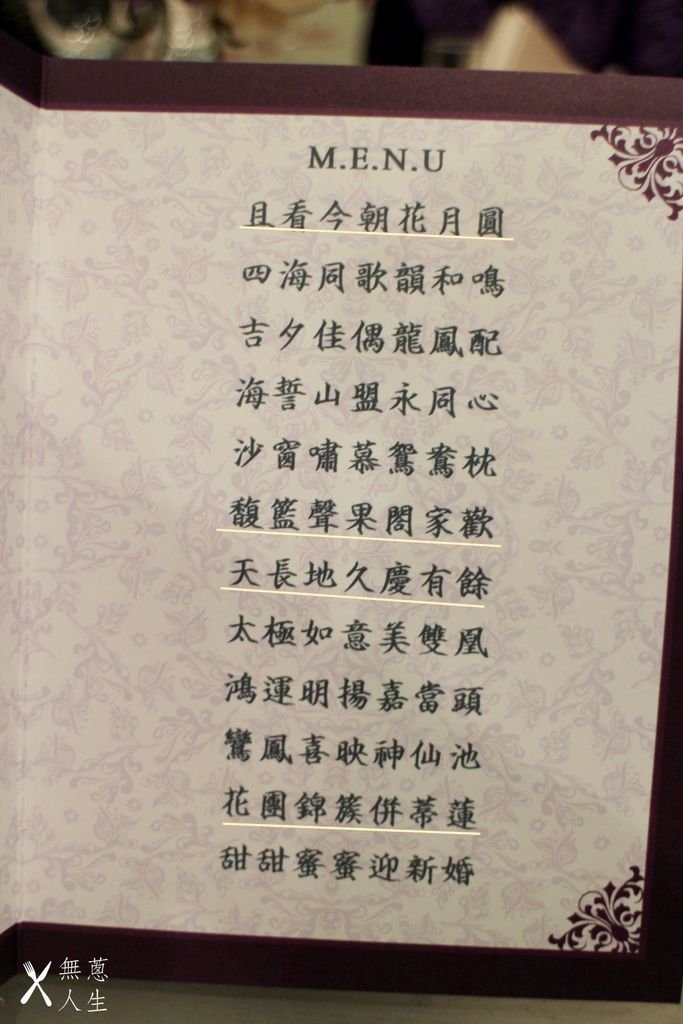 M.E.N.U
且看今朝花月圓
四海同歌韻和鳴
吉夕佳偶龍鳳配
海誓山盟永同心
沙窗嘯慕鴛鴦枕
馥籃聲果閤家歡
天長地久慶有餘
太極如意美雙凰
鴻運明揚嘉當頭
鸞鳳喜映神仙池
花團錦簇併蒂蓮
甜甜蜜蜜迎新婚
無蔥
人生